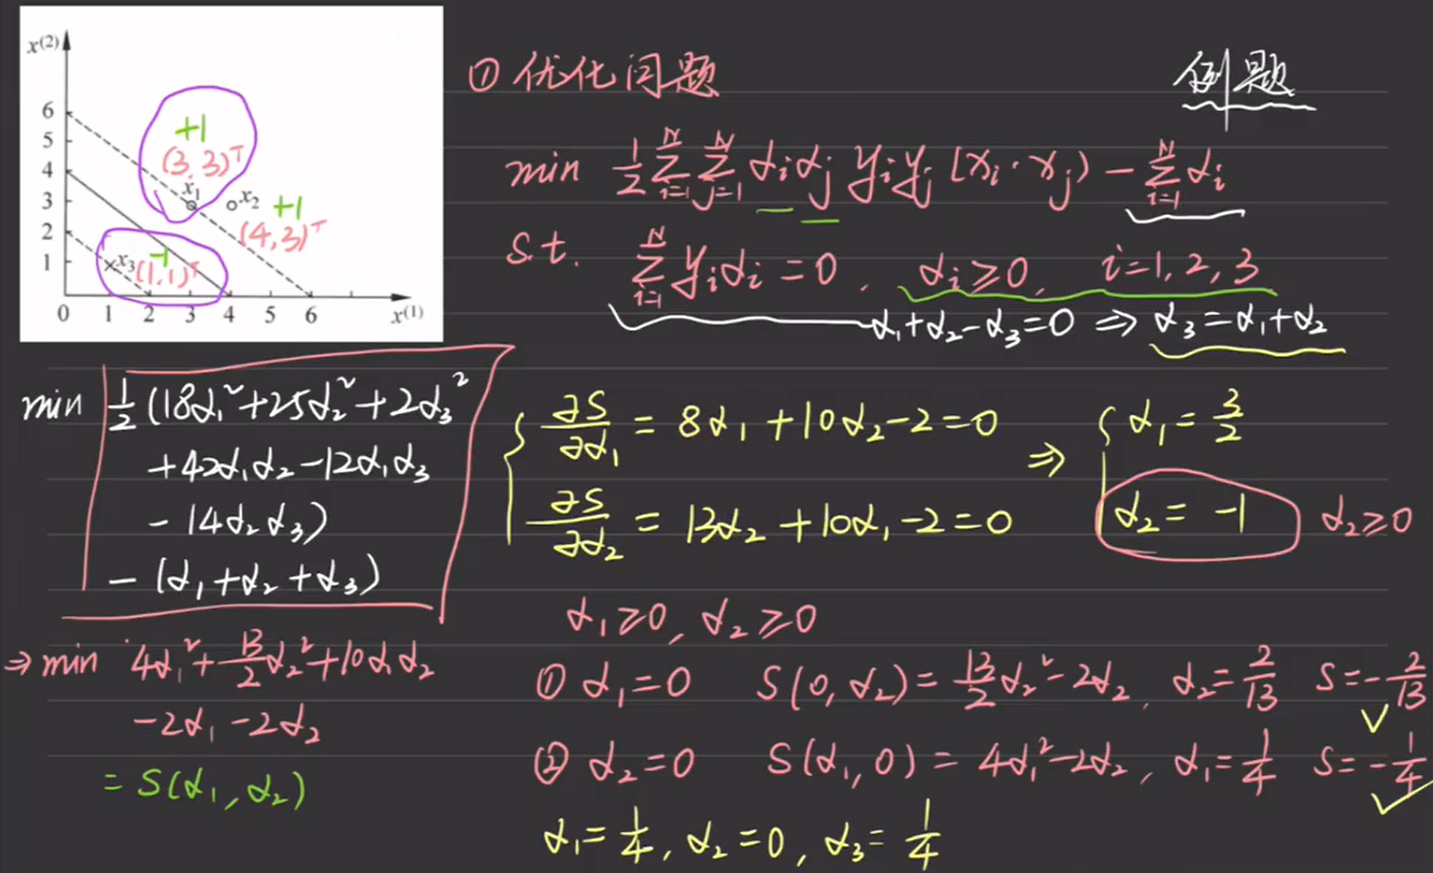 x(2)
6
5
4
3
2
1
0 1 2 3 4 5 6 x(1)
+1
(3,3)ᵀ
x₁
x₂ +1
(4,3)ᵀ
x₃ -1
(1,1)ᵀ
① 优化问题
例题
min ½ Σᵢ₌₁ᴺ Σⱼ₌₁ᴺ αᵢαⱼ yᵢyⱼ (xᵢ·xⱼ) − Σᵢ₌₁ᴺ αᵢ
s.t. Σᵢ₌₁ᴺ yᵢαᵢ = 0, αᵢ ≥ 0, i = 1, 2, 3
α₁+α₂−α₃=0 ⇒ α₃=α₁+α₂
min ½ (18α₁²+25α₂²+2α₃²
+42α₁α₂−12α₁α₃
−14α₂α₃)
−(α₁+α₂+α₃)
⇒ min 4α₁²+13/2 α₂²+10α₁α₂
−2α₁−2α₂
= S(α₁, α₂)
{ ∂S/∂α₁ = 8α₁+10α₂−2=0
∂S/∂α₂ = 13α₂+10α₁−2=0
⇒ { α₁ = 3/2
α₂ = −1 α₂≥0
α₁≥0, α₂≥0
① α₁=0 S(0, α₂) = 13/2 α₂²−2α₂, α₂=2/13 S=−2/13
② α₂=0 S(α₁, 0) = 4α₁²−2α₂, α₁=1/4 S=−1/4
α₁=1/4, α₂=0, α₃=1/4